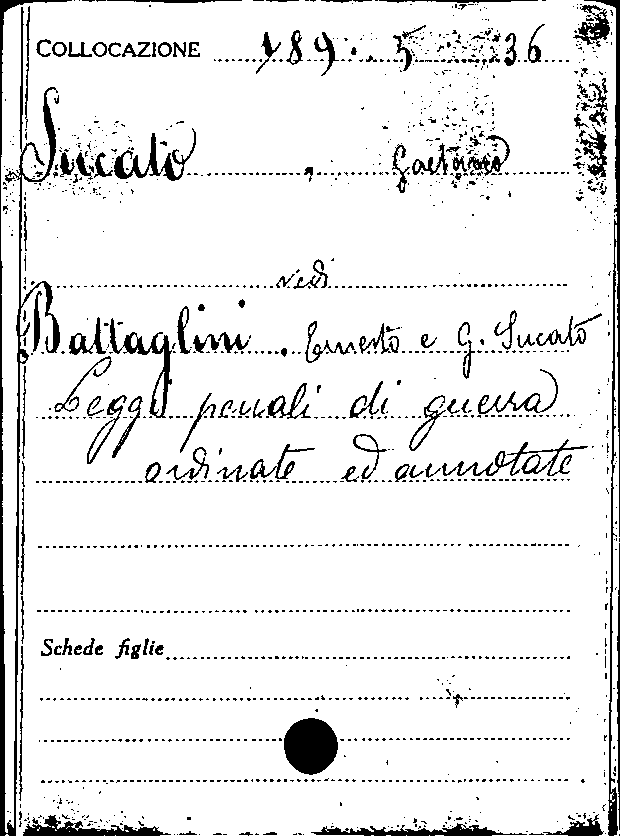 COLLOCAZIONE 189. 5 36
Sucato, Gaetano
vedi
Battaglini. Ernesto e G. Sucato
Leggi penali di guerra
ordinate ed annotate
Schede figlie